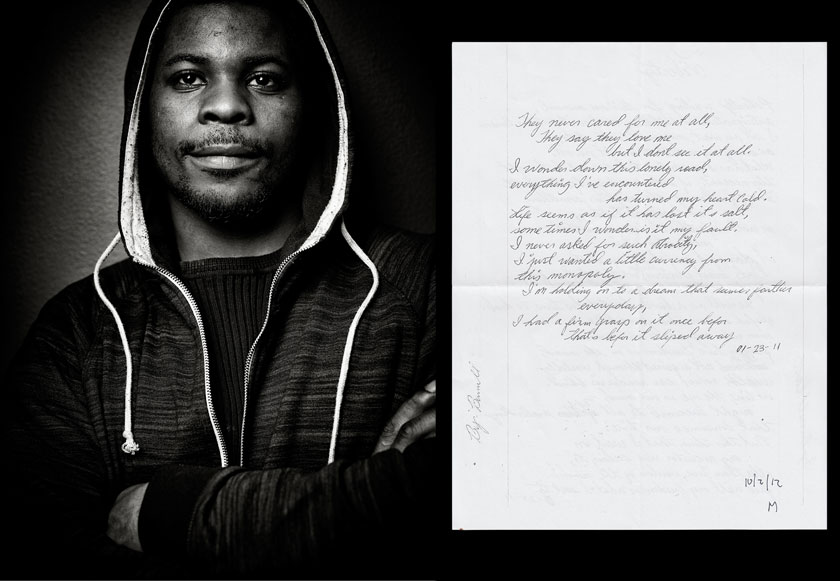 They never cared for me at all,
They say they love me
but I dont see it at all.
I wonder down this lonely road,
everything I've encountered
has turned my heart cold.
Life seems as if it has lost it's salt,
sometimes I wonder is it my fault.
I never asked for such atrocity,
I just wanted a little currency from
this monopoly.
I'm holding on to a dream that seems farther
everyday,
I had a firm grasp on it once befor
that's befor it sliped away
01-23-11
By:
10/2/12
M